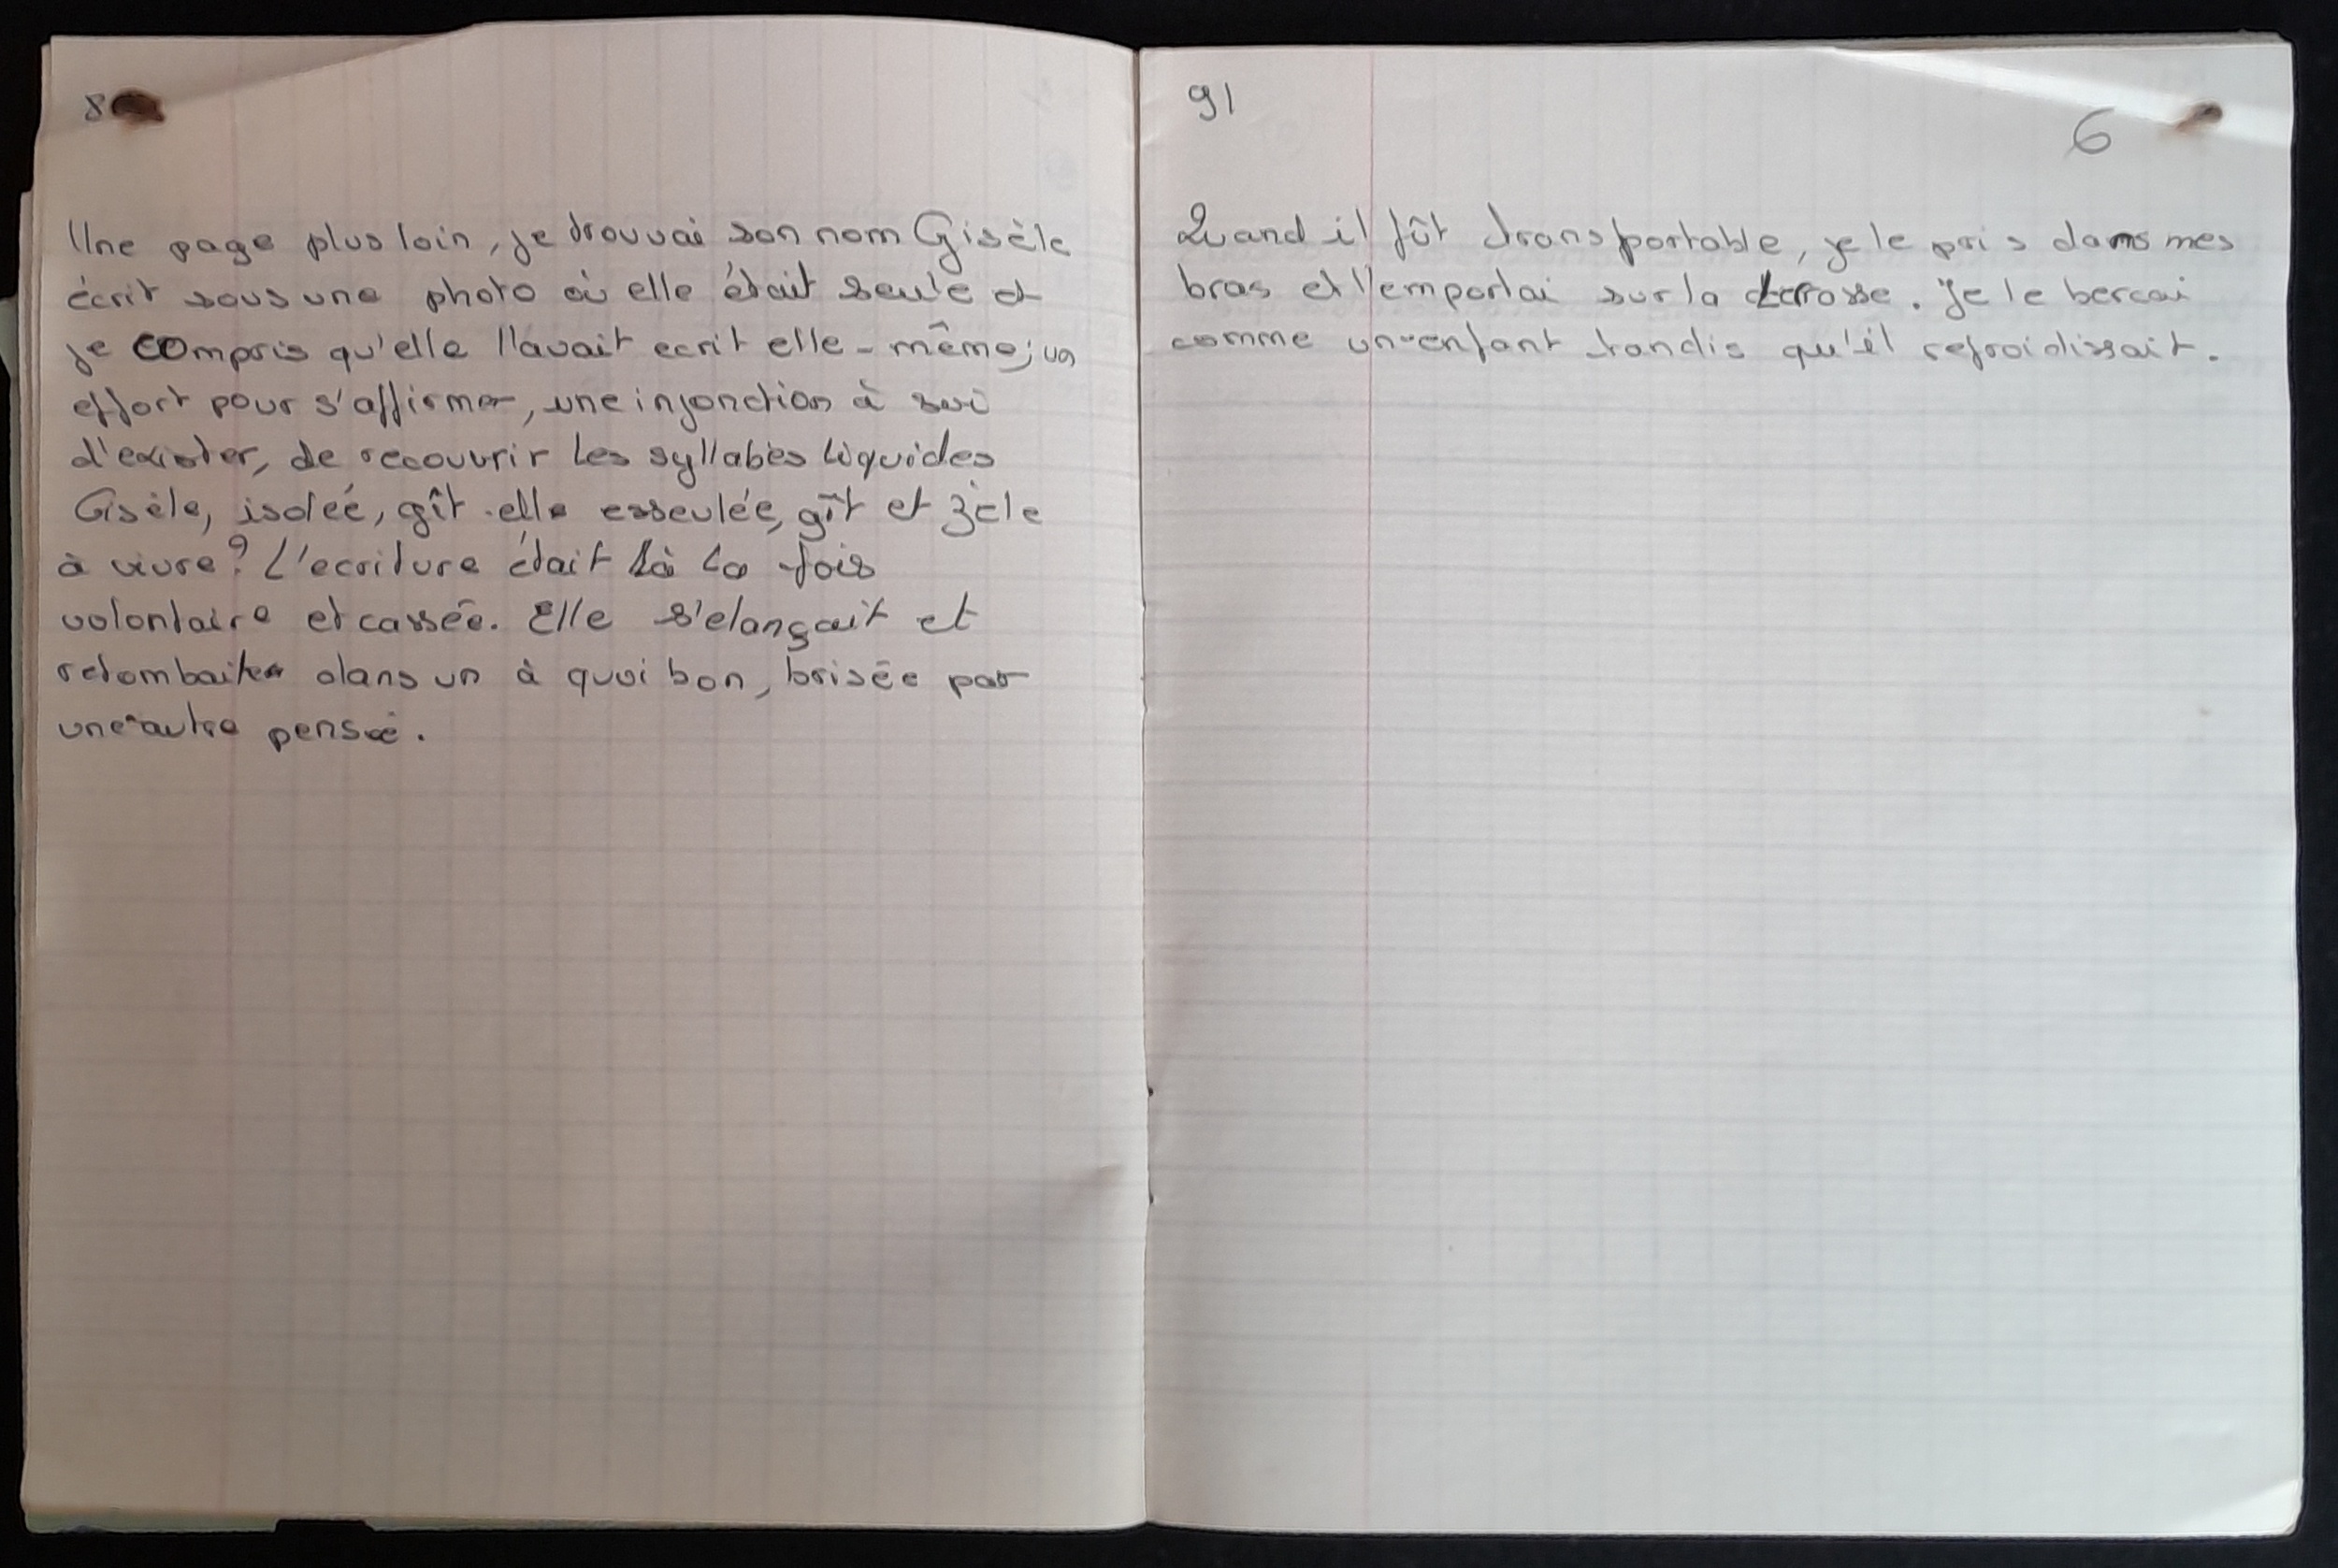 8
Une page plus loin, je trouvai son nom Gisèle
écrit sous une photo où elle était seule et
je compris qu'elle l'avait ecrit elle-même; un
effort pour s'affirmer, une injonction à soi
d'exister, de recouvrir les syllabes liquides
Gisèle, isolée, gît-elle esseulée, gît et zèle
à vivre? L'ecriture était à la fois
volontaire et cassée. Elle s'elançait et
retombait dans un à quoi bon, brisée par
une autre pensée.
91
6
Quand il fût transportable, je le pris dans mes
bras et l'emportai sur la terrasse. Je le bercai
comme un enfant tandis qu'il refroidissait.